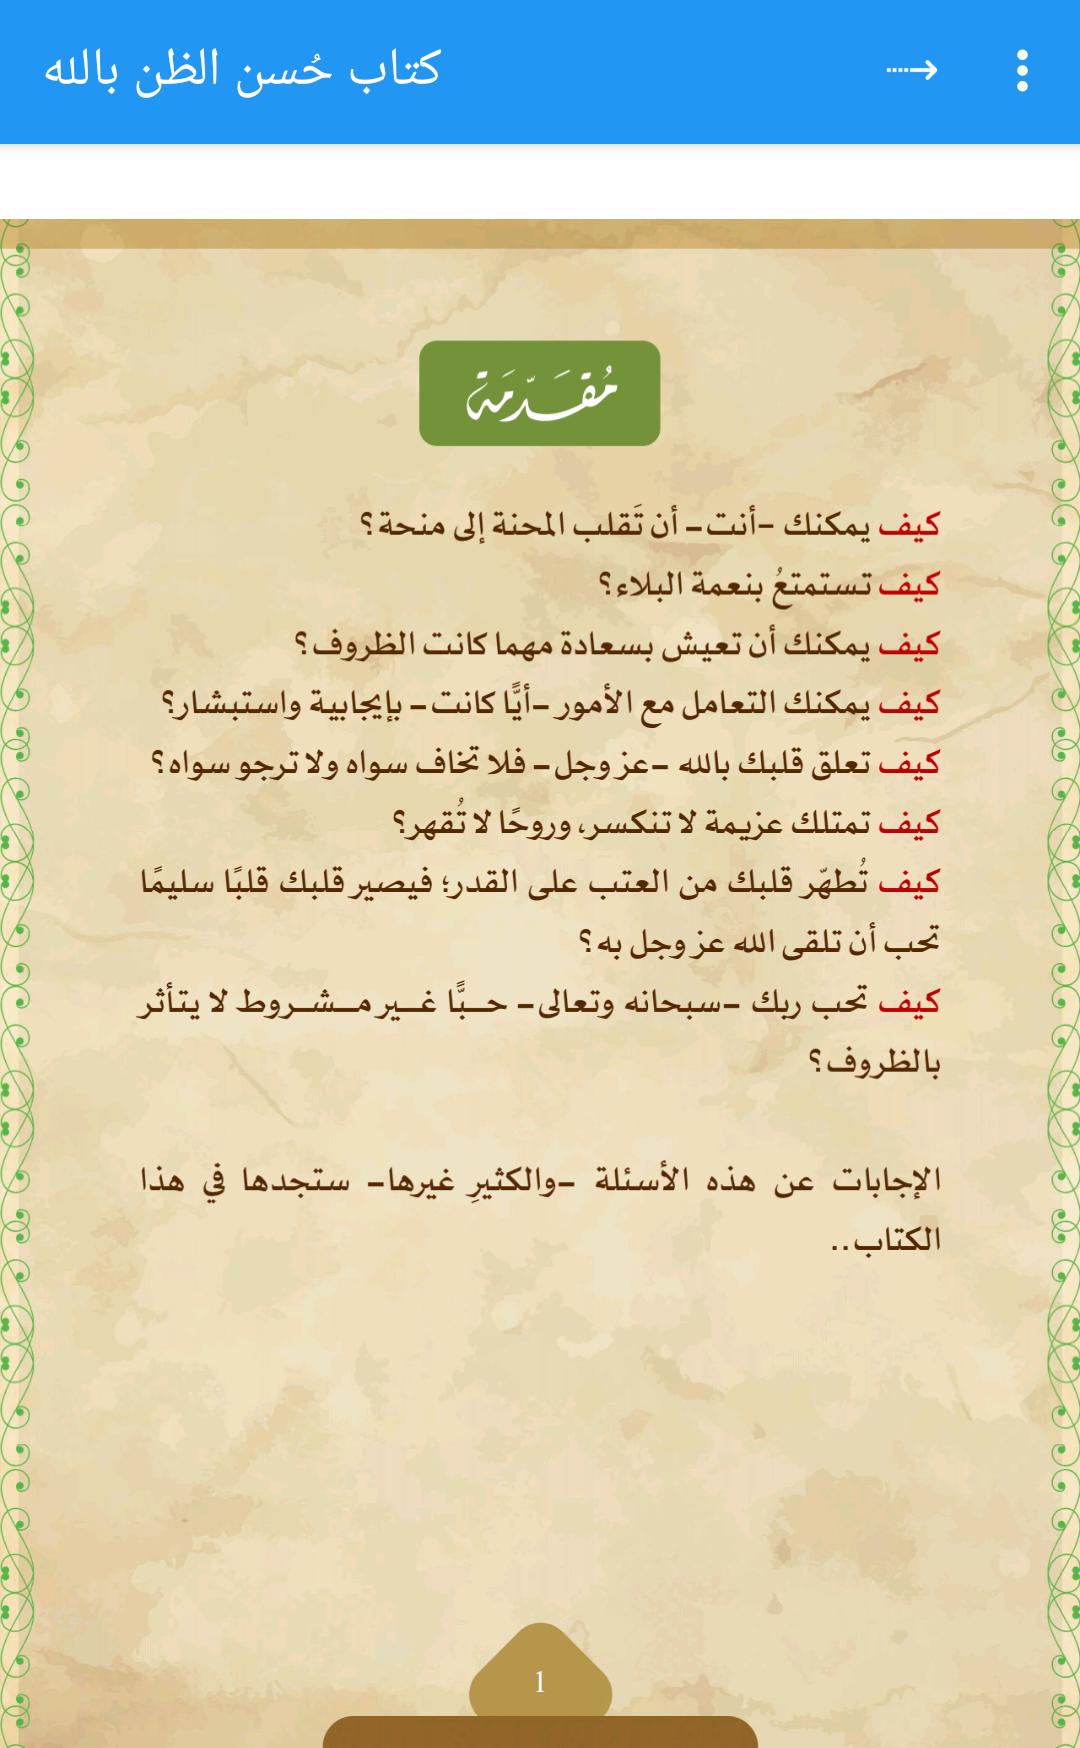 كتاب حُسن الظن بالله
مُقَدّمَة
كيف يمكنك -أنت- أن تَقلب المحنة إلى منحة؟
كيف تستمتعُ بنعمة البلاء؟
كيف يمكنك أن تعيش بسعادة مهما كانت الظروف؟
كيف يمكنك التعامل مع الأمور -أيًّا كانت- بإيجابية واستبشار؟
كيف تعلق قلبك بالله -عز وجل- فلا تخاف سواه ولا ترجو سواه؟
كيف تمتلك عزيمة لا تنكسر، وروحًا لا تُقهر؟
كيف تُطهّر قلبك من العتب على القدر؛ فيصير قلبك قلبًا سليمًا
تحب أن تلقى الله عز وجل به؟
كيف تحب ربك -سبحانه وتعالى- حـبًّا غـير مـشـروط لا يتأثر
بالظروف؟
الإجابات عن هذه الأسئلة -والكثيرِ غيرها- ستجدها في هذا
الكتاب..
1